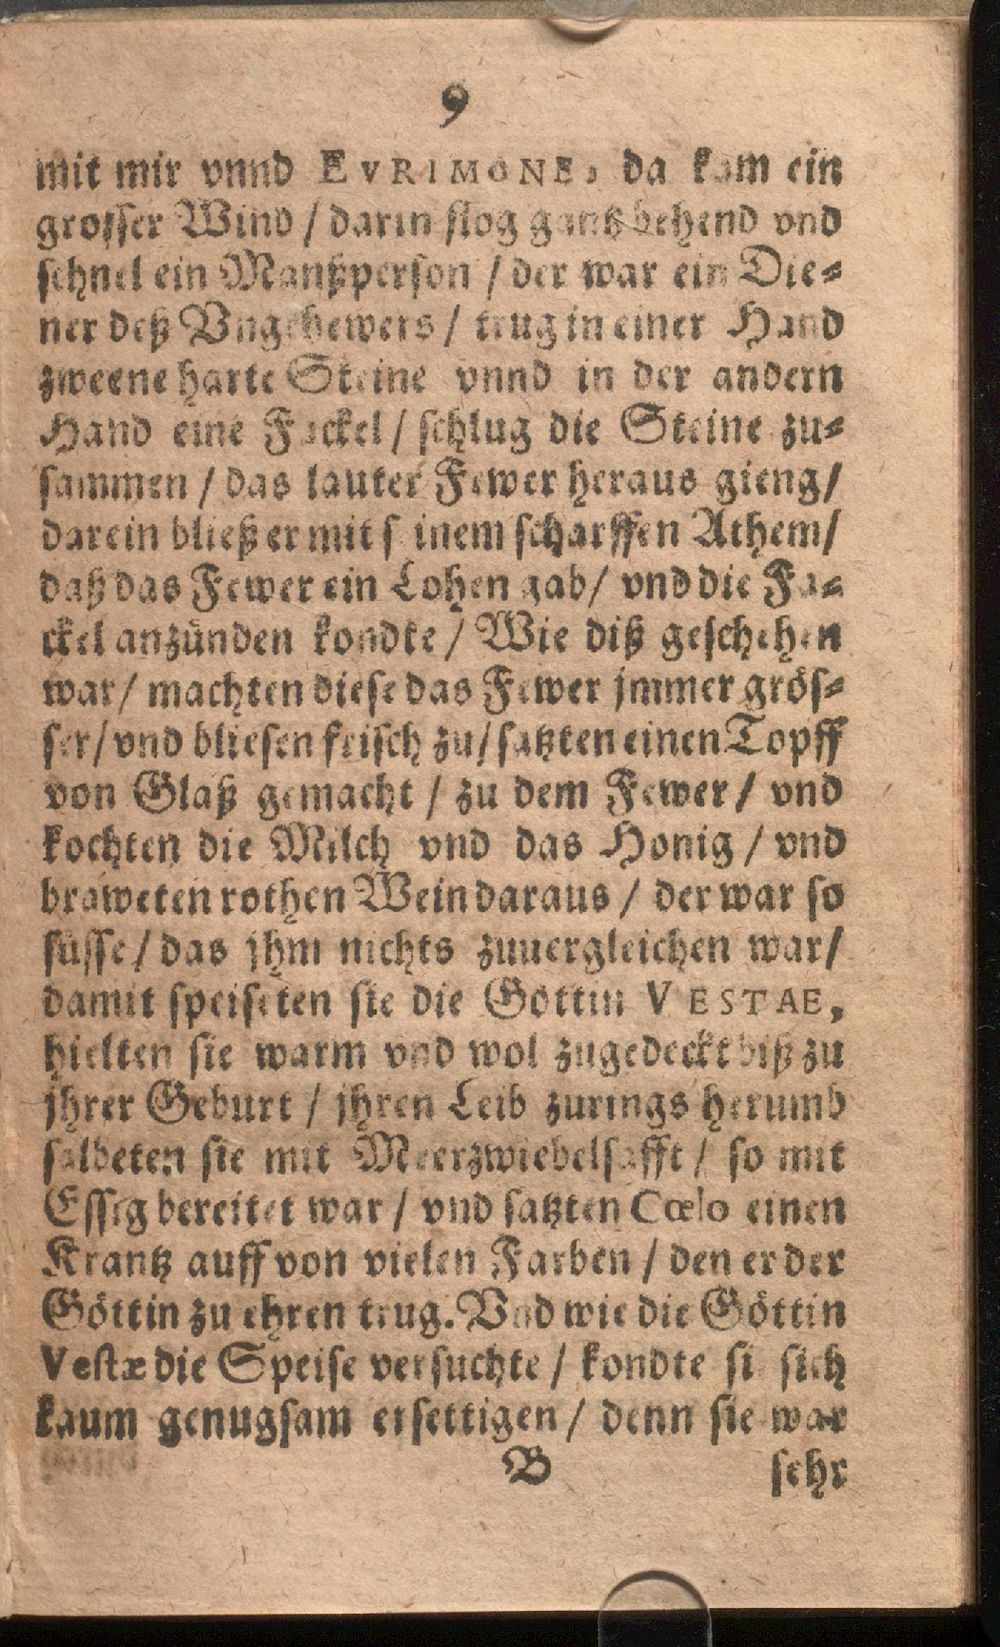 9
mit mir vnnd EVRIMONE, da kam ein
grosser Wind / darin flog gantz behend vnd
schnel ein Manßperson / der war ein Die-
ner deß Vngehewers / trug in einer Hand
zweene harte Steine vnnd in der andern
Hand eine Fackel / schlug die Steine zu-
sammen / das lauter Fewer heraus gieng /
darein bließ er mit seinem scharffen Athem /
daß das Fewer ein Lohen gab / vnd die Fa-
ckel anzünden kondte / Wie diß geschehen
war / machten diese das Fewer jmmer grös-
ser / vnd bliesen frisch zu / satzten einen Topff
von Glaß gemacht / zu dem Fewer / vnd
kochten die Milch vnd das Honig / vnd
braweten rothen Wein daraus / der war so
süsse / das jhm nichts zuuergleichen war /
damit speiseten sie die Göttin VESTAE,
hielten sie warm vnd wol zugedeckt biß zu
jhrer Geburt / jhren Leib zurings herumb
salbeten sie mit Meerzwiebelsafft / so mit
Essig bereitet war / vnd satzten Cœlo einen
Krantz auff von vielen Farben / den er der
Göttin zu ehren trug. Vnd wie die Göttin
Vestæ die Speise versuchte / kondte sie sich
kaum genugsam ersettigen / denn sie war
B sehr